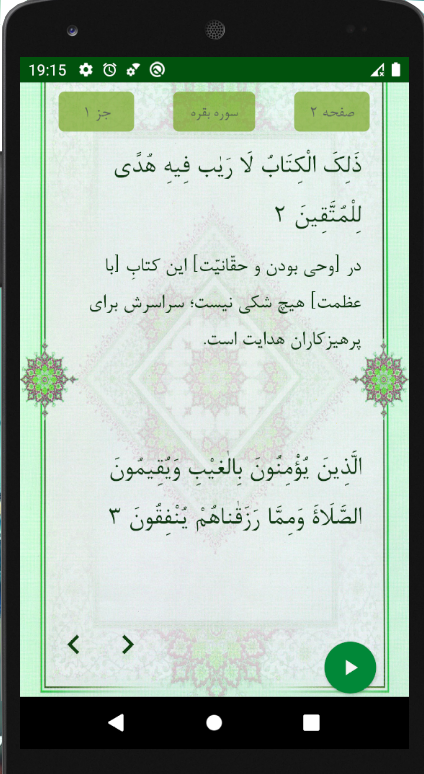 19:15
صفحه ۲
سوره بقره
جز ۱
ذَلِکَ الْکِتَابُ لَا رَیْب فِیهِ هُدًی
لِلْمُتَّقِینَ ۲
در [وحی بودن و حقّانیّت] این کتابِ [با
عظمت] هیچ شکی نیست؛ سراسرش برای
پرهیزکاران هدایت است.
الَّذِینَ یُؤْمِنُونَ بِالْغَیْبِ وَیُقِیمُونَ
الصَّلَاةَ وَمِمَّا رَزَقْنَاهُمْ یُنْفِقُونَ ۳